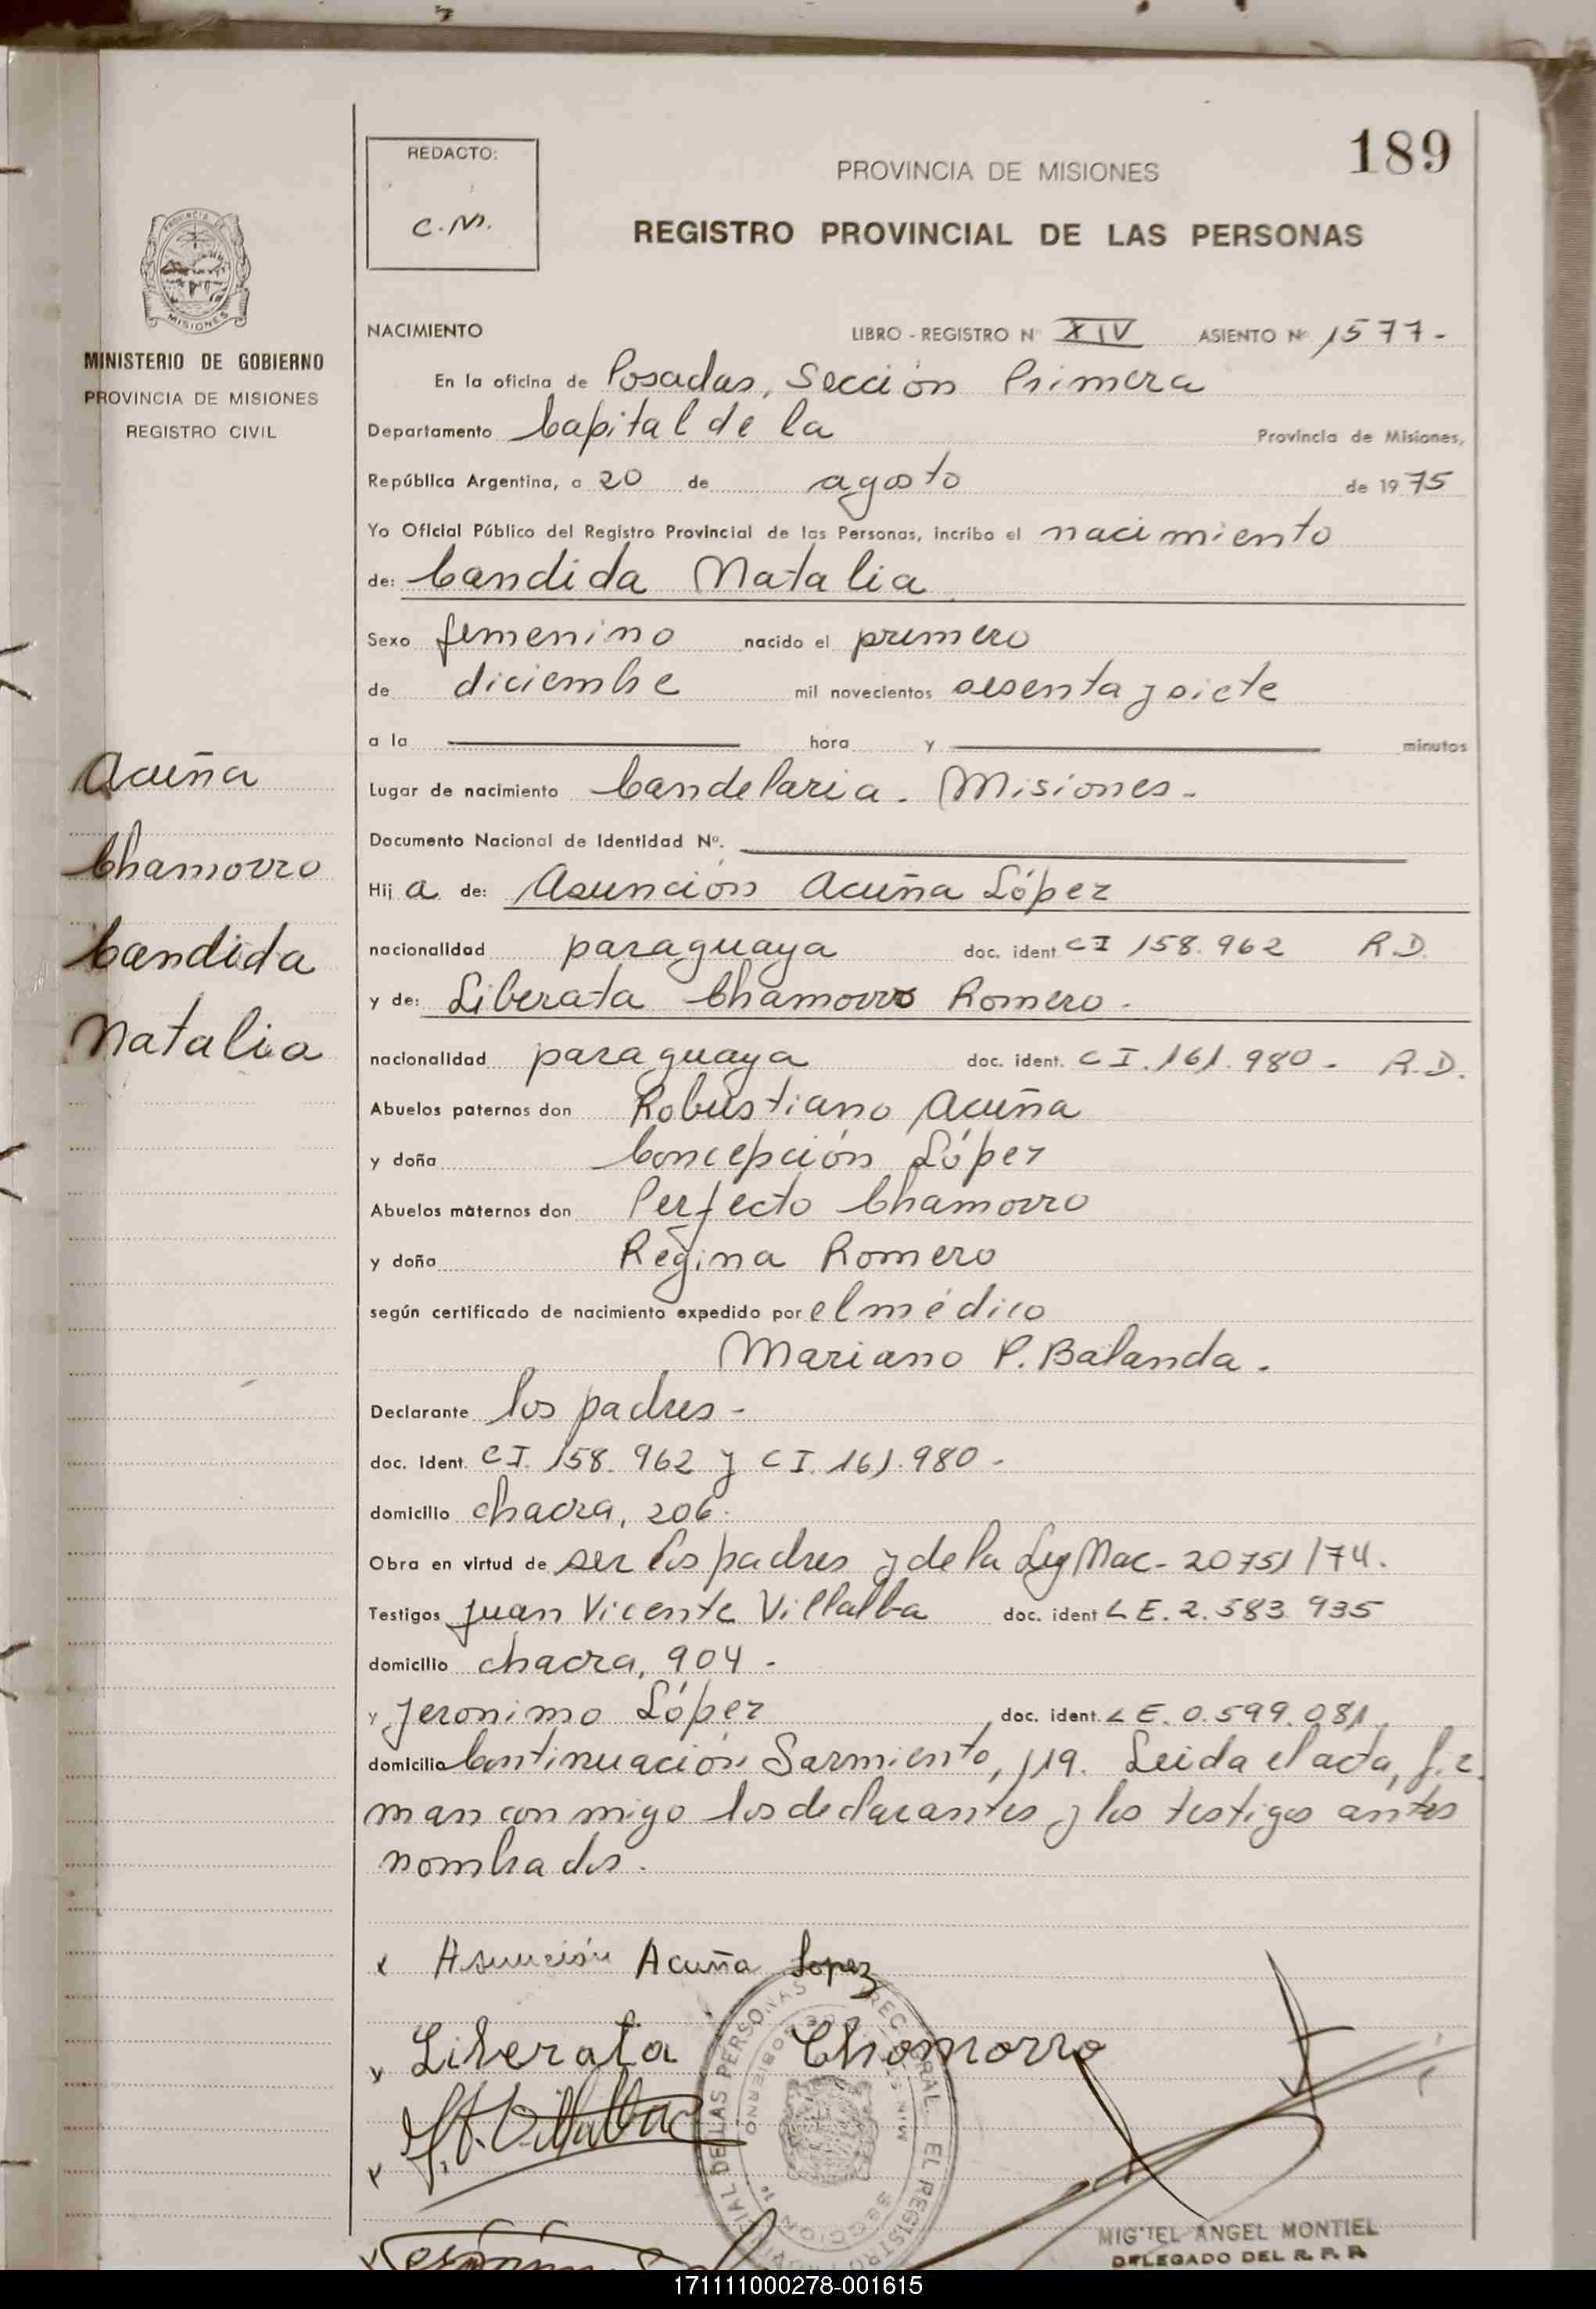 189
REDACTO:
C.M.
PROVINCIA DE MISIONES
REGISTRO PROVINCIAL DE LAS PERSONAS
PROVINCIA DE
MISIONES
MINISTERIO DE GOBIERNO
PROVINCIA DE MISIONES
REGISTRO CIVIL
Acuña
Chamorro
Candida
Natalia
NACIMIENTO LIBRO - REGISTRO Nº XIV ASIENTO Nº 1577-
En la oficina de Posadas, Sección Primera
Departamento Capital de la Provincia de Misiones,
República Argentina, a 20 de agosto de 1975
Yo Oficial Público del Registro Provincial de las Personas, incribo el nacimiento
de: Candida Natalia
Sexo femenino nacido el primero
de diciembre mil novecientos sesenta y siete
a la hora y minutos
Lugar de nacimiento Candelaria. Misiones-
Documento Nacional de Identidad Nº.
Hija de: Asunción Acuña López
nacionalidad paraguaya doc. ident. CI 158.962 R.D.
y de: Liberata Chamorro Romero-
nacionalidad paraguaya doc. ident. CI.161.980- R.D.
Abuelos paternos don Robustiano Acuña
y doña Concepción López
Abuelos maternos don Perfecto Chamorro
y doña Regina Romero
según certificado de nacimiento expedido por el médico
Mariano P. Balanda.
Declarante los padres-
doc. Ident. CI. 158.962 y CI. 161.980-
domicilio chacra, 206.
Obra en virtud de ser los padres y de la Ley Nac- 20751/74.
Testigos Juan Vicente Villalba doc. ident LE. 2.583.935
domicilio chacra, 904-
y Jeronimo López doc. ident. LE. 0.599.081,
domicilio Continuación Sarmiento, 119. Leida el acta, fir
man conmigo los declarantes y los testigos antes
nombrados.
x Asunción Acuña Lopez
x Liberata Chomorro
x J.V. Villalba
REGISTRO PROVINCIAL DE LAS PERSONAS
SECCION 1º
MIGUEL ANGEL MONTIEL
DELEGADO DEL R. P. P.
171111000278-001615